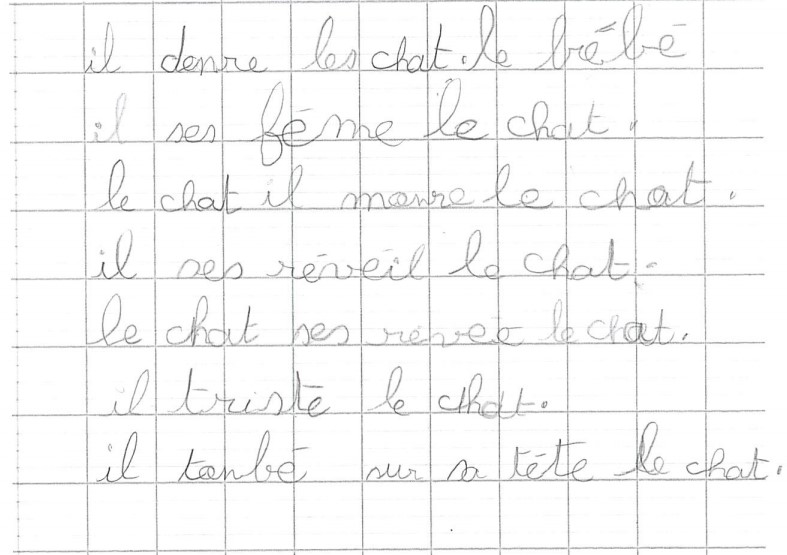 il denre les chat. le bébé
il ses féme le chat.
le chat il manre le chat.
il ses réveil le chat.
le chat ses reveé le chat.
il triste le chat.
il tanbé sur sa téte le chat.